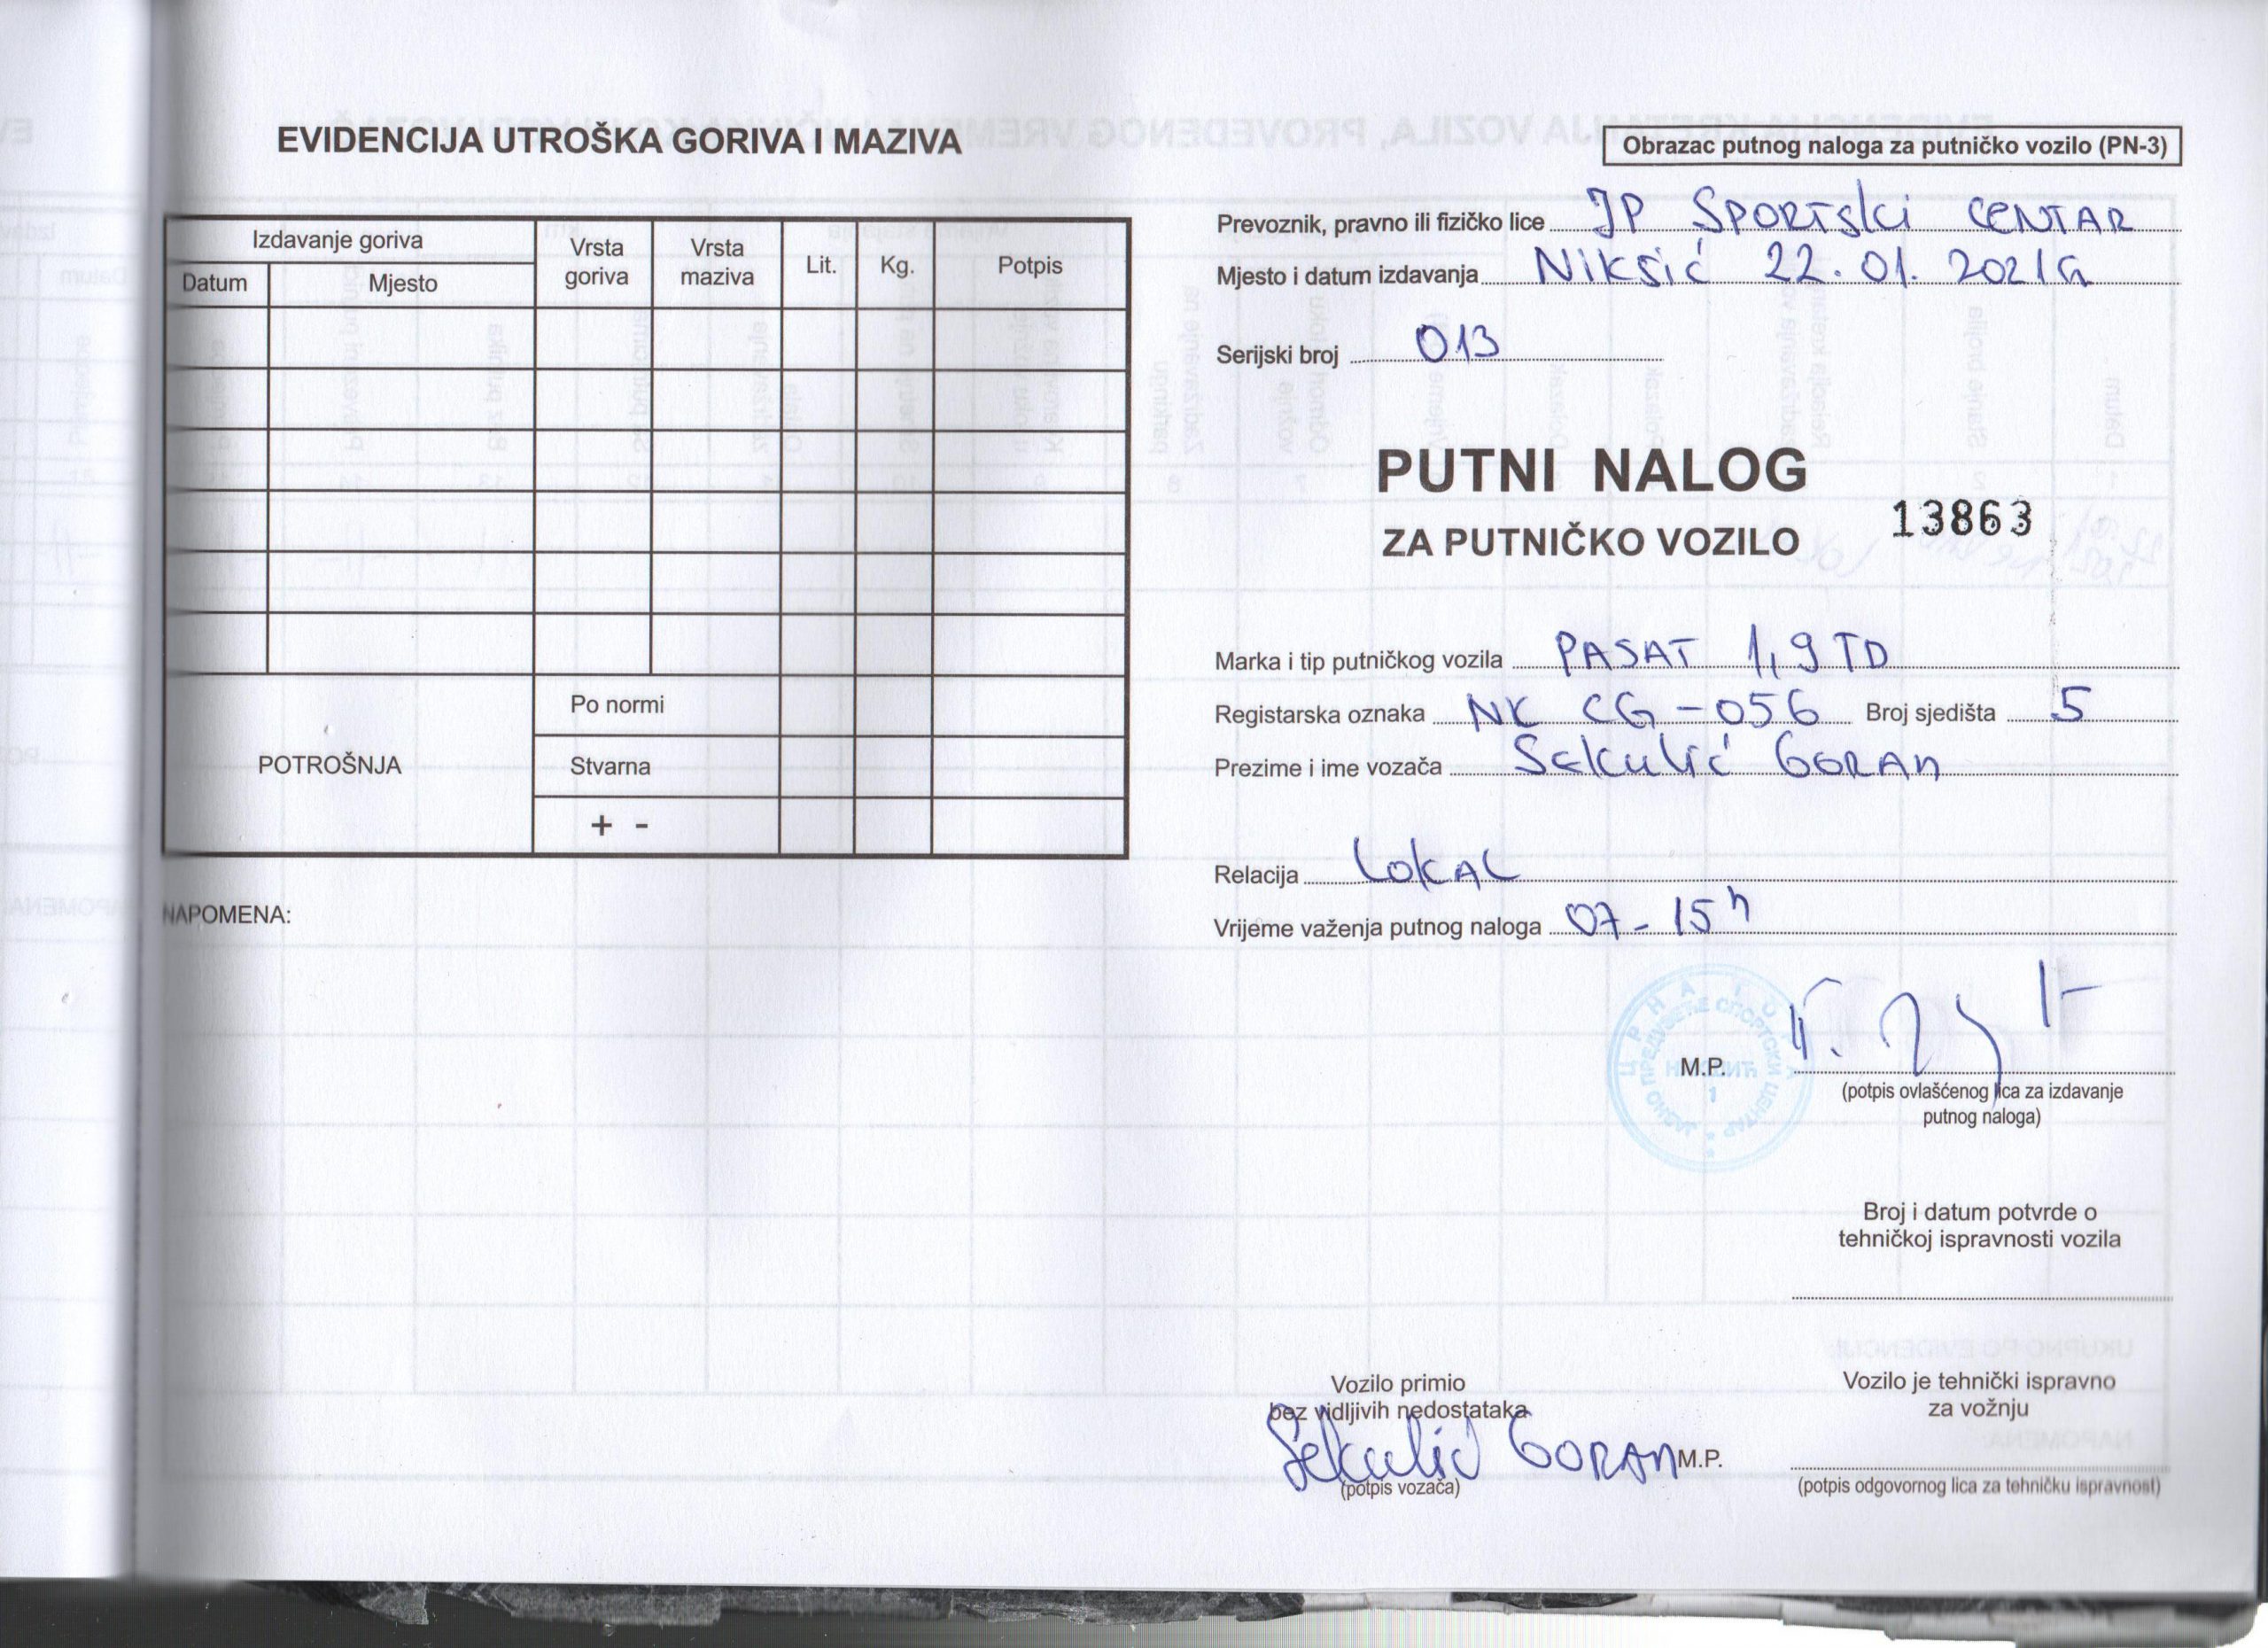 EVIDENCIJA UTROŠKA GORIVA I MAZIVA
Izdavanje goriva
Datum
Mjesto
Vrsta goriva
Vrsta maziva
Lit.
Kg.
Potpis
POTROŠNJA
Po normi
Stvarna
+ -
NAPOMENA:
Obrazac putnog naloga za putničko vozilo (PN-3)
Prevoznik, pravno ili fizičko lice JP SPORTSki CENTAR
Mjesto i datum izdavanja Nikšić 22.01.2021G
Serijski broj 013
PUTNI NALOG
ZA PUTNIČKO VOZILO 13863
Marka i tip putničkog vozila PASAT 1,9 TD
Registarska oznaka NK CG-056 Broj sjedišta 5
Prezime i ime vozača Sekulić GORAN
Relacija LOKAL
Vrijeme važenja putnog naloga 07-15h
ЦРНА ГОРА
ЈАВНО ПРЕДУЗЕЋЕ СПОРТСКИ ЦЕНТАР
НИКШИЋ
1
M.P.
(potpis ovlašćenog lica za izdavanje
putnog naloga)
Broj i datum potvrde o
tehničkoj ispravnosti vozila
Vozilo primio
bez vidljivih nedostataka
Sekulić GORAN M.P.
(potpis vozača)
Vozilo je tehnički ispravno
za vožnju
(potpis odgovornog lica za tehničku ispravnost)